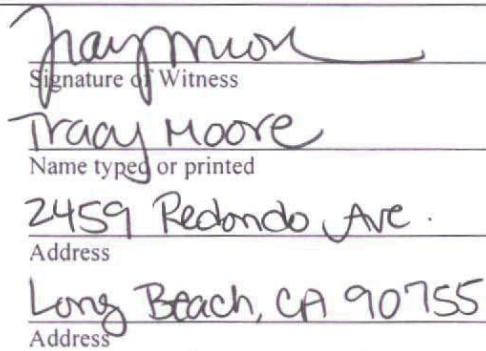 Tracy Moore
Signature of Witness
Tracy Moore
Name typed or printed
2459 Redondo Ave.
Address
Long Beach, CA 90755
Address